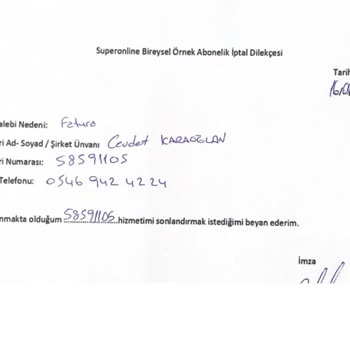 Superonline Bireysel Örnek Abonelik İptal Dilekçesi
Tarih
16/0
alebi Nedeni: Fatura
ri Ad- Soyad / Şirket Ünvanı Cevdet KARAOĞLAN
ri Numarası: 58591105
Telefonu: 0546 942 4224
nmakta olduğum 58591105 hizmetimi sonlandırmak istediğimi beyan ederim.
İmza